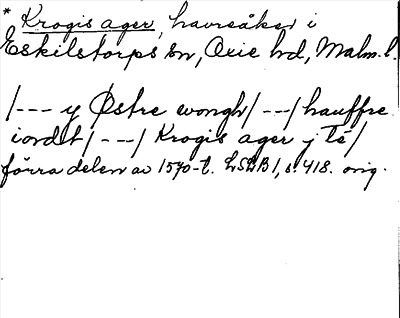 * Krogis ager, havreåker i
Eskilstorps sn, Oxie hd, Malm. l.
/--- y Østre wongh/---/hauffre
iordt/---/Krogis ager j té/
förra delen av 1570-t. LSLB 1, s. 418. orig.